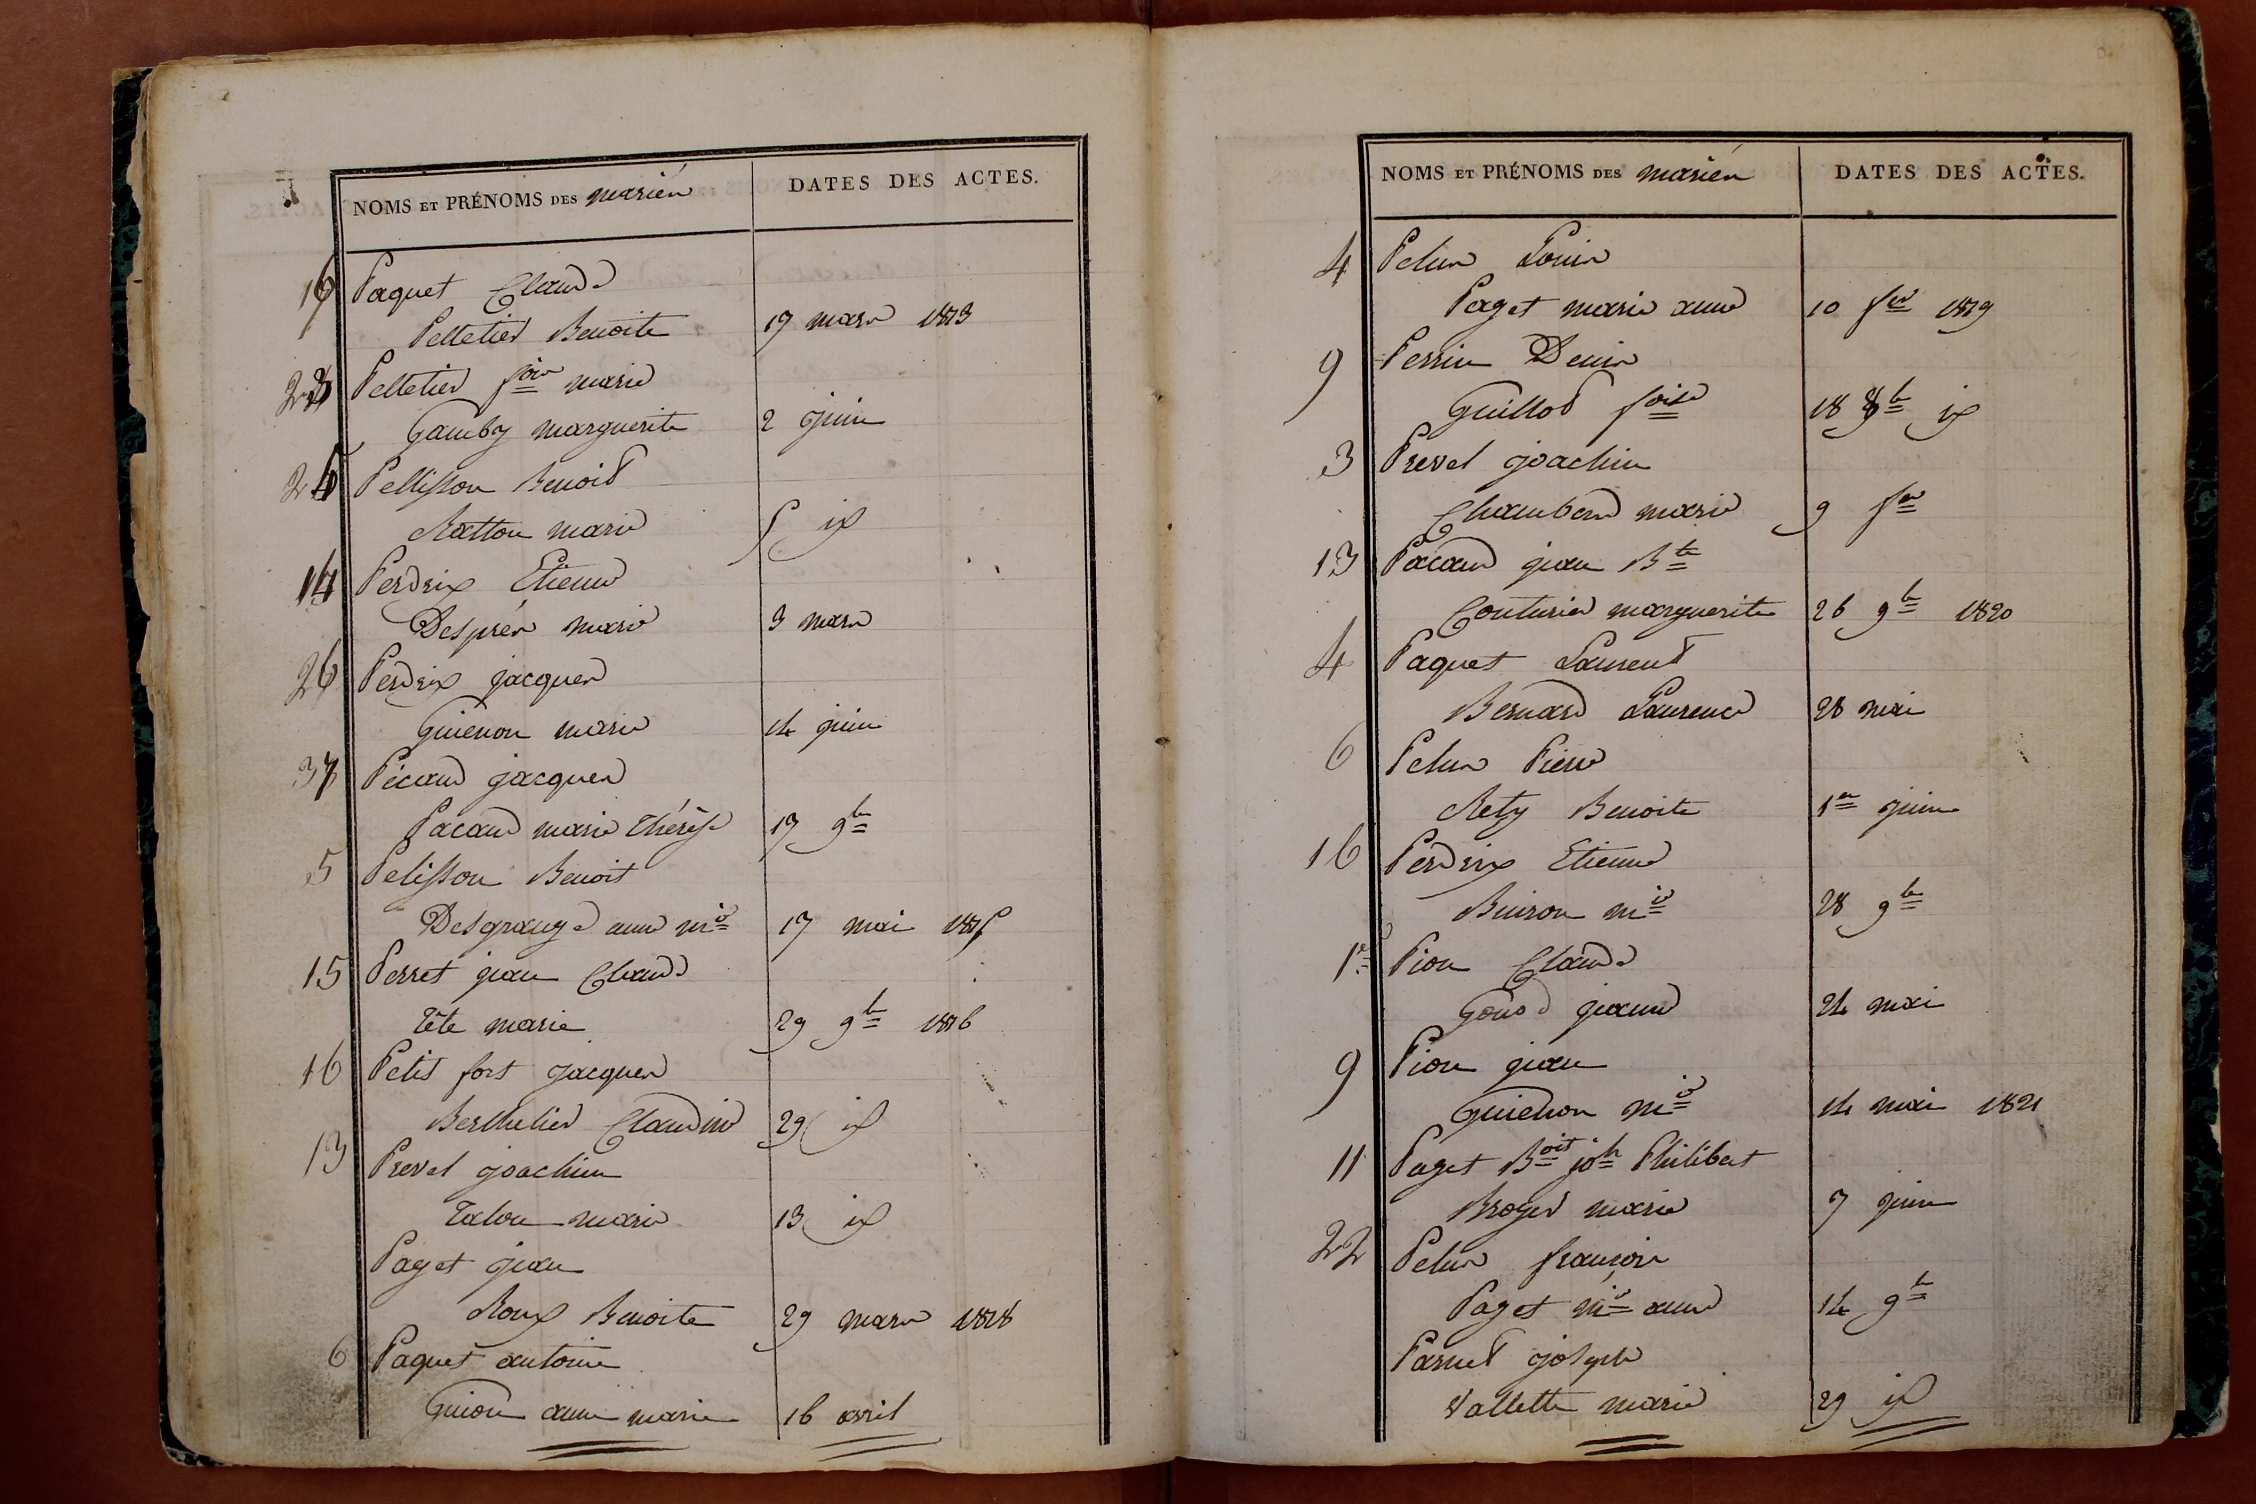 NOMS ET PRÉNOMS DES mariés DATES DES ACTES.
Paquet Claude
Pelletier Benoite 17 mars 1813
Pelletier fois marie
Gamby marguerite 2 juin
Pellisson Benoit
Ratton marie 5 id
14 Perdrix Etienne
Desprès marie 3 mars
26 Perdrix jacques
Guienon marie 14 juin
37 Pécaud jacques
Pacaud marie Thérèse 17 9bre
5 Pelisson Benoit
Desgrange anne mie 17 mai 1815
15 Perret jean Claude
Tête marie 29 9bre 1816
16 Petit fort jacques
Berthelier Claudine 29 id
13 Prevel joachim
Talon marie 13 id
Paget jean
Roux Benoite 29 mars 1818
6 Paquet antoine
Guion anne marie 16 avril
NOMS ET PRÉNOMS DES mariés DATES DES ACTES.
4 Pelus Louis
Paget marie anne 10 fer 1819
9 Perrin Denis
Guillot foise 18 8bre id
3 Prevel joachim
Chambard marie 9 fer
13 Pacaud jean Bte
Couturier marguerite 26 9bre 1820
4 Paquet Laurent
Bernard Laurence 28 mai
6 Pelus Pierre
Rety Benoite 1er juin
16 Perdrix Etienne
Buiron mie 28 9bre
1er Pion Claude
Gonod jeanne 24 mai
9 Pion jean
Guienon mie 14 mai 1821
11 Paget Boit jph Philibert
Broyer marie 7 juin
22 Pelus françois
Paget mie anne 14 9bre
Parnet joseph
Vallette marie 29 id